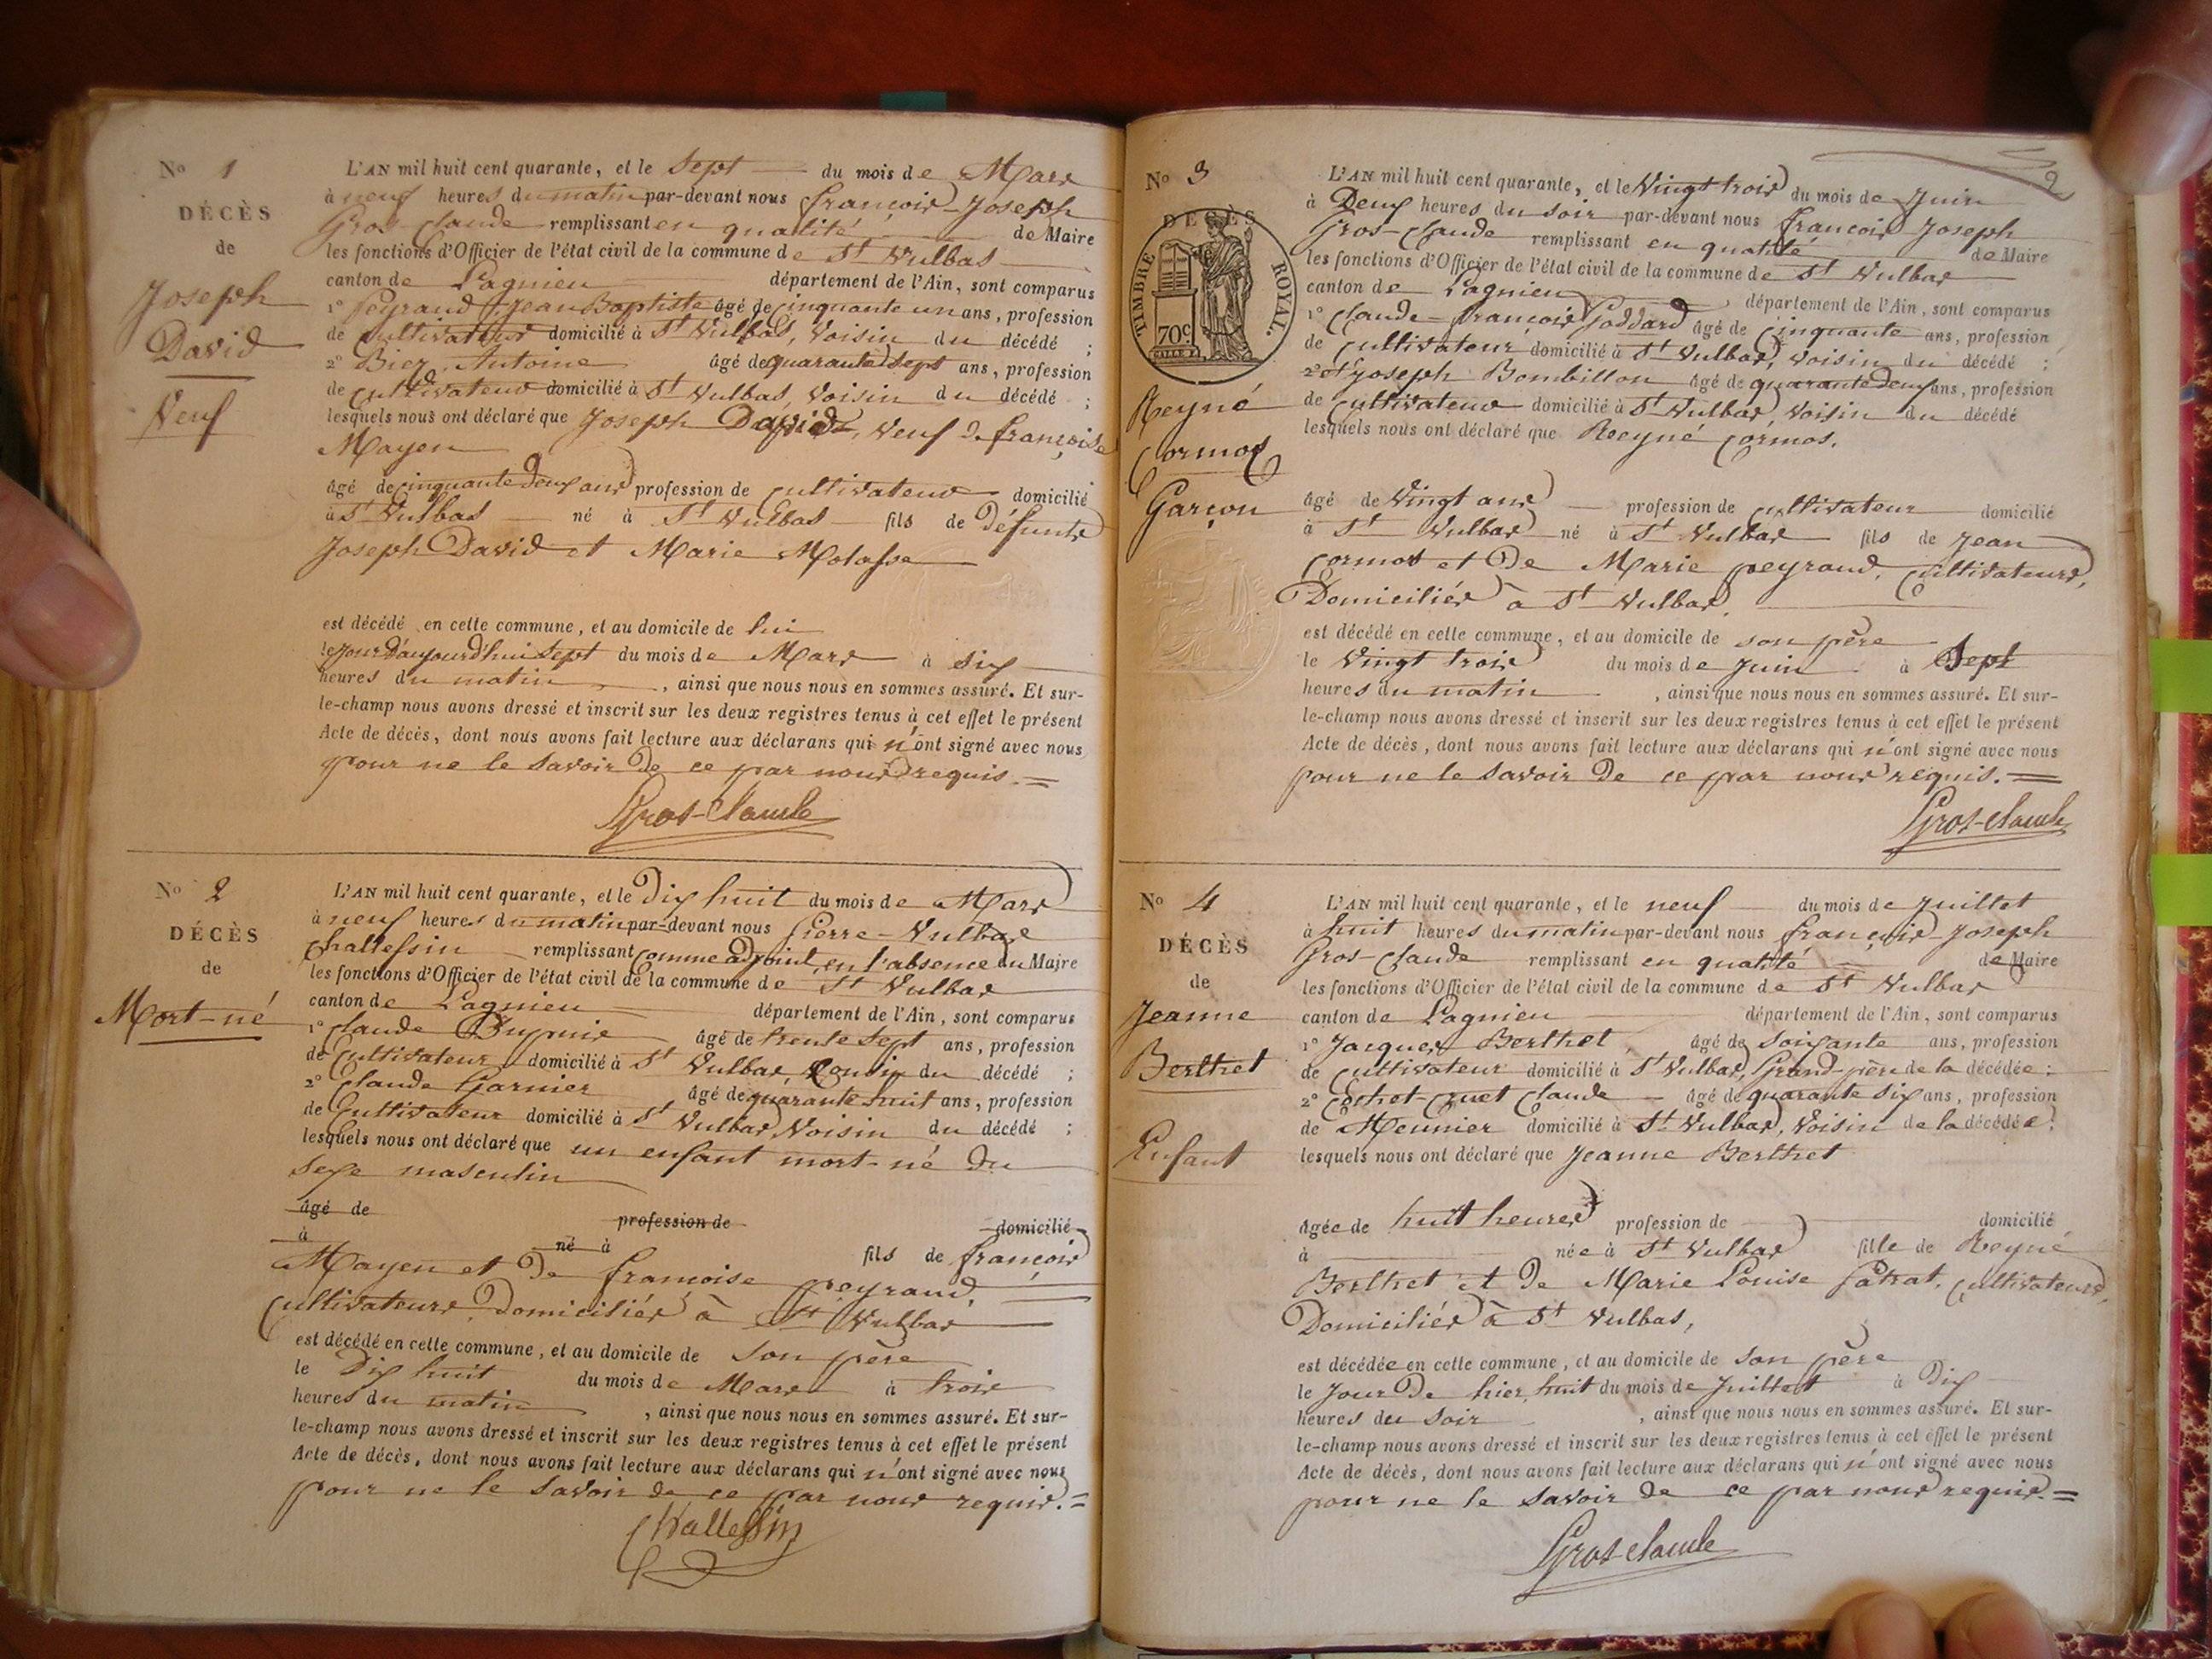 No 1
DÉCÈS
de
Joseph
David
Veuf
L'AN mil huit cent quarante, et le Sept du mois de Mars
à neuf heures du matin par-devant nous françois-Joseph
Gros-Claude remplissant en qualité de Maire
les fonctions d'Officier de l'état civil de la commune de St Vulbas
canton de Lagnieu département de l'Ain, sont comparus
1º Peyraud Jean Baptiste âgé de cinquante un ans, profession
de cultivateur domicilié à St Vulbas, Voisin du décédé ;
2º Antoine âgé de quarante Sept ans, profession
de cultivateur domicilié à St Vulbas, Voisin du décédé ;
lesquels nous ont déclaré que Joseph David, Veuf de françoise
Mayen
âgé de cinquante deux ans profession de cultivateur domicilié
à St Vulbas né à St Vulbas fils de défunts
Joseph David et Marie Molasse
est décédé en cette commune, et au domicile de lui
le jour d'aujourd'hui Sept du mois de Mars à Six
heures du matin, ainsi que nous nous en sommes assuré. Et sur-
le-champ nous avons dressé et inscrit sur les deux registres tenus à cet effet le présent
Acte de décès, dont nous avons fait lecture aux déclarans qui n'ont signé avec nous
pour ne le Savoir de ce par nous requis.
Gros-Claude
No 2
DÉCÈS
de
Mort-né
L'AN mil huit cent quarante, et le Dix huit du mois de Mars
à neuf heures du matin par-devant nous Pierre-Vulbas
Challessin remplissant comme adjoint, en l'absence du Maire
les fonctions d'Officier de l'état civil de la commune de St Vulbas
canton de Lagnieu département de l'Ain, sont comparus
1º Claude Dupuis âgé de trente Sept ans, profession
de Cultivateur domicilié à St Vulbas, Cousin du décédé ;
2º Claude Garnier âgé de quarante huit ans, profession
de Cultivateur domicilié à St Vulbas, Voisin du décédé ;
lesquels nous ont déclaré que un enfant mort-né du
Sexe masculin
âgé de profession de domicilié
à né à fils de françois
Mayen et de françoise peyraud,
Cultivateurs, Domiciliés à St Vulbas
est décédé en cette commune, et au domicile de Son père
le Dix huit du mois de Mars à trois
heures du matin, ainsi que nous nous en sommes assuré. Et sur-
le-champ nous avons dressé et inscrit sur les deux registres tenus à cet effet le présent
Acte de décès, dont nous avons fait lecture aux déclarans qui n'ont signé avec nous
pour ne le Savoir de ce par nous requis.
Challessin
2
No 3
DÉCÈS
TIMBRE ROYAL.
70c.
Reyné
Cormos
Garçon
L'AN mil huit cent quarante, et le Vingt trois du mois de Juin
à Deux heures du Soir par-devant nous françois Joseph
Gros-Claude remplissant en qualité de Maire
les fonctions d'Officier de l'état civil de la commune de St Vulbas
canton de Lagnieu, département de l'Ain, sont comparus
1º Claude-françois Goddard âgé de Cinquante ans, profession
de Cultivateur domicilié à St Vulbas, Voisin du décédé ;
2º et Joseph Bombillon âgé de quarante deux ans, profession
de Cultivateur domicilié à St Vulbas, Voisin du décédé
lesquels nous ont déclaré que Reyné Cormos,
âgé de Vingt ans profession de cultivateur domicilié
à St Vulbas né à St Vulbas fils de Jean
Cormos et De Marie peyraud, Cultivateurs,
Domiciliés à St Vulbas,
est décédé en cette commune, et au domicile de son père
le Vingt trois du mois de Juin à Sept
heures du matin, ainsi que nous nous en sommes assuré. Et sur-
le-champ nous avons dressé et inscrit sur les deux registres tenus à cet effet le présent
Acte de décès, dont nous avons fait lecture aux déclarans qui n'ont signé avec nous
pour ne le Savoir De ce par nous requis.
Gros-Claude
No 4
DÉCÈS
de
Jeanne
Berthet
Enfant
L'AN mil huit cent quarante, et le neuf du mois de Juillet
à huit heures du matin par-devant nous françois-Joseph
Gros-Claude remplissant en qualité de Maire
les fonctions d'Officier de l'état civil de la commune de St Vulbas
canton de Lagnieu département de l'Ain, sont comparus
1º Jacques Berthet âgé de Soixante ans, profession
de Cultivateur domicilié à St Vulbas, Grand-père de la décédée ;
2º Claude âgé de quarante Six ans, profession
de Meunier domicilié à St Vulbas, Voisin de la décédée ;
lesquels nous ont déclaré que Jeanne Berthet
âgée de huit heures profession de domicilié
à née à St Vulbas fille de Reyné
Berthet et De Marie Louise Patrat, Cultivateurs,
Domiciliés à St Vulbas,
est décédée en cette commune, et au domicile de Son père
le Jour De hier, huit du mois de Juillet à Dix
heures du Soir, ainsi que nous nous en sommes assuré. Et sur-
le-champ nous avons dressé et inscrit sur les deux registres tenus à cet effet le présent
Acte de décès, dont nous avons fait lecture aux déclarans qui n'ont signé avec nous
pour ne le Savoir De ce par nous requis.
Gros-Claude